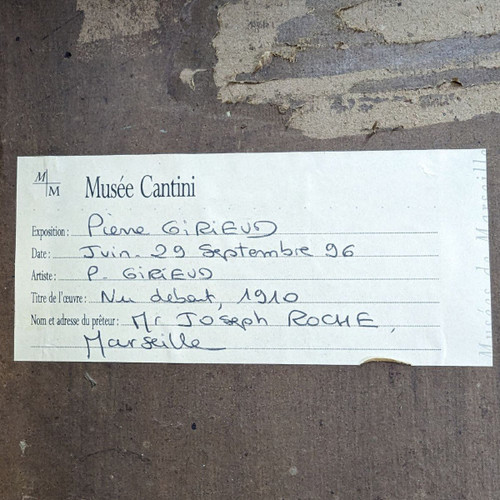 M M
Musée Cantini
Exposition : Pierre GiRiEUD
Date : Juin. 29 Septembre 96
Artiste : P. GiRiEUD
Titre de l'œuvre : Nu debout, 1910
Nom et adresse du prêteur : Mr Joseph ROCHE,
Marseille
Musées de Marseille